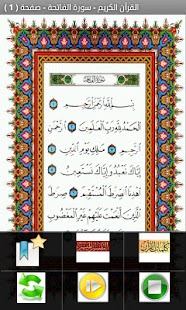 القرآن الكريم - سورة الفاتحة - صفحة ( 1 )
بِسْمِ اللَّهِ الرَّحْمَٰنِ
الرَّحِيمِ ۝ الْحَمْدُ لِلَّهِ رَبِّ الْعَالَمِينَ ۝ الرَّحْمَٰنِ
الرَّحِيمِ ۝ مَالِكِ يَوْمِ الدِّينِ ۝
إِيَّاكَ نَعْبُدُ وَإِيَّاكَ نَسْتَعِينُ ۝
اهْدِنَا الصِّرَاطَ الْمُسْتَقِيمَ ۝ صِرَاطَ
الَّذِينَ أَنْعَمْتَ عَلَيْهِمْ غَيْرِ الْمَغْضُوبِ